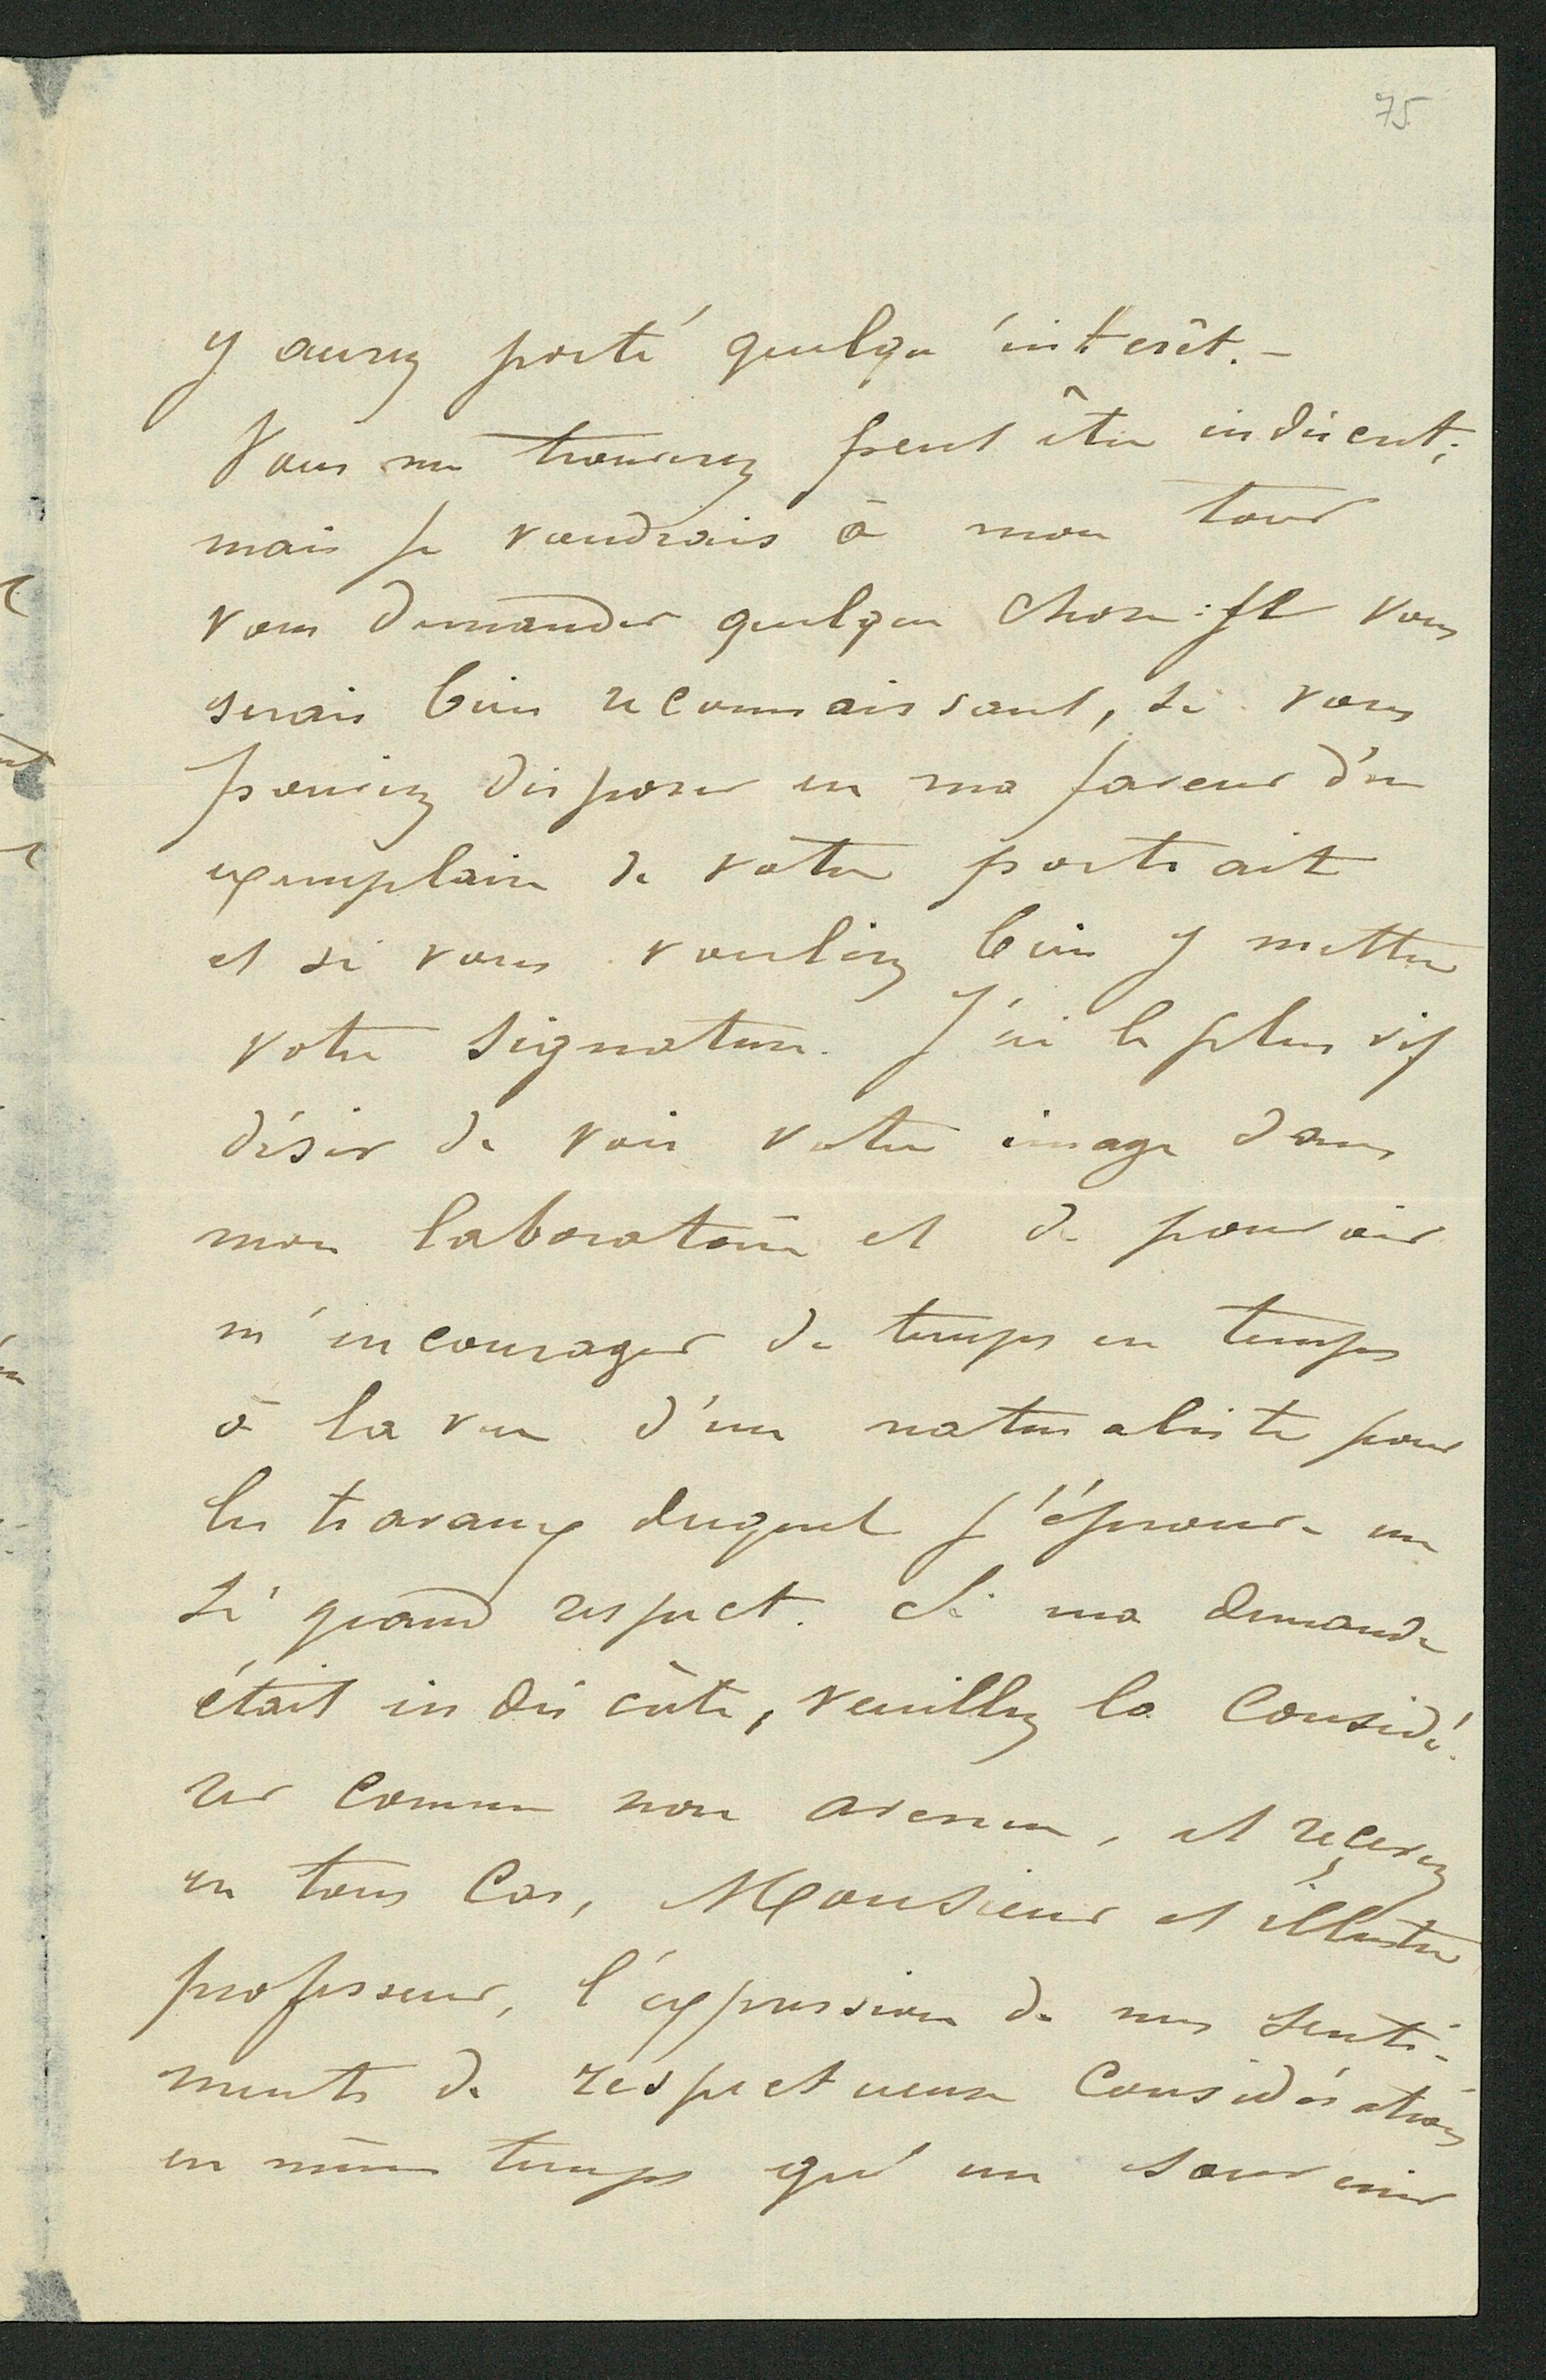 75
y aurez porté quelqu'intérêt. –
Vous me trouverez peut être indiscret;
mais je voudrais à mon tour
vous demander quelque chose: Je vous
serais bien reconnaissant, si vous
pouviez disposer en ma faveur d'un
exemplaire de votre portrait
et si vous vouliez bien y mettre
votre signature. J'ai le plus vif
désir de voir votre image dans
mon laboratoire et de pouvoir
m'encourager de temps en temps
à la vue d'un naturaliste pour
les travaux duquel j'éprouve un
si grand respect. Si ma demande
était indiscrète, veuillez la considé-
rer comme non avenue, et recevez
en tous cas, Monsieur et illustre
professeur, l'expression de mes senti-
ments de respectueuse considération
en même temps qu'un souvenir